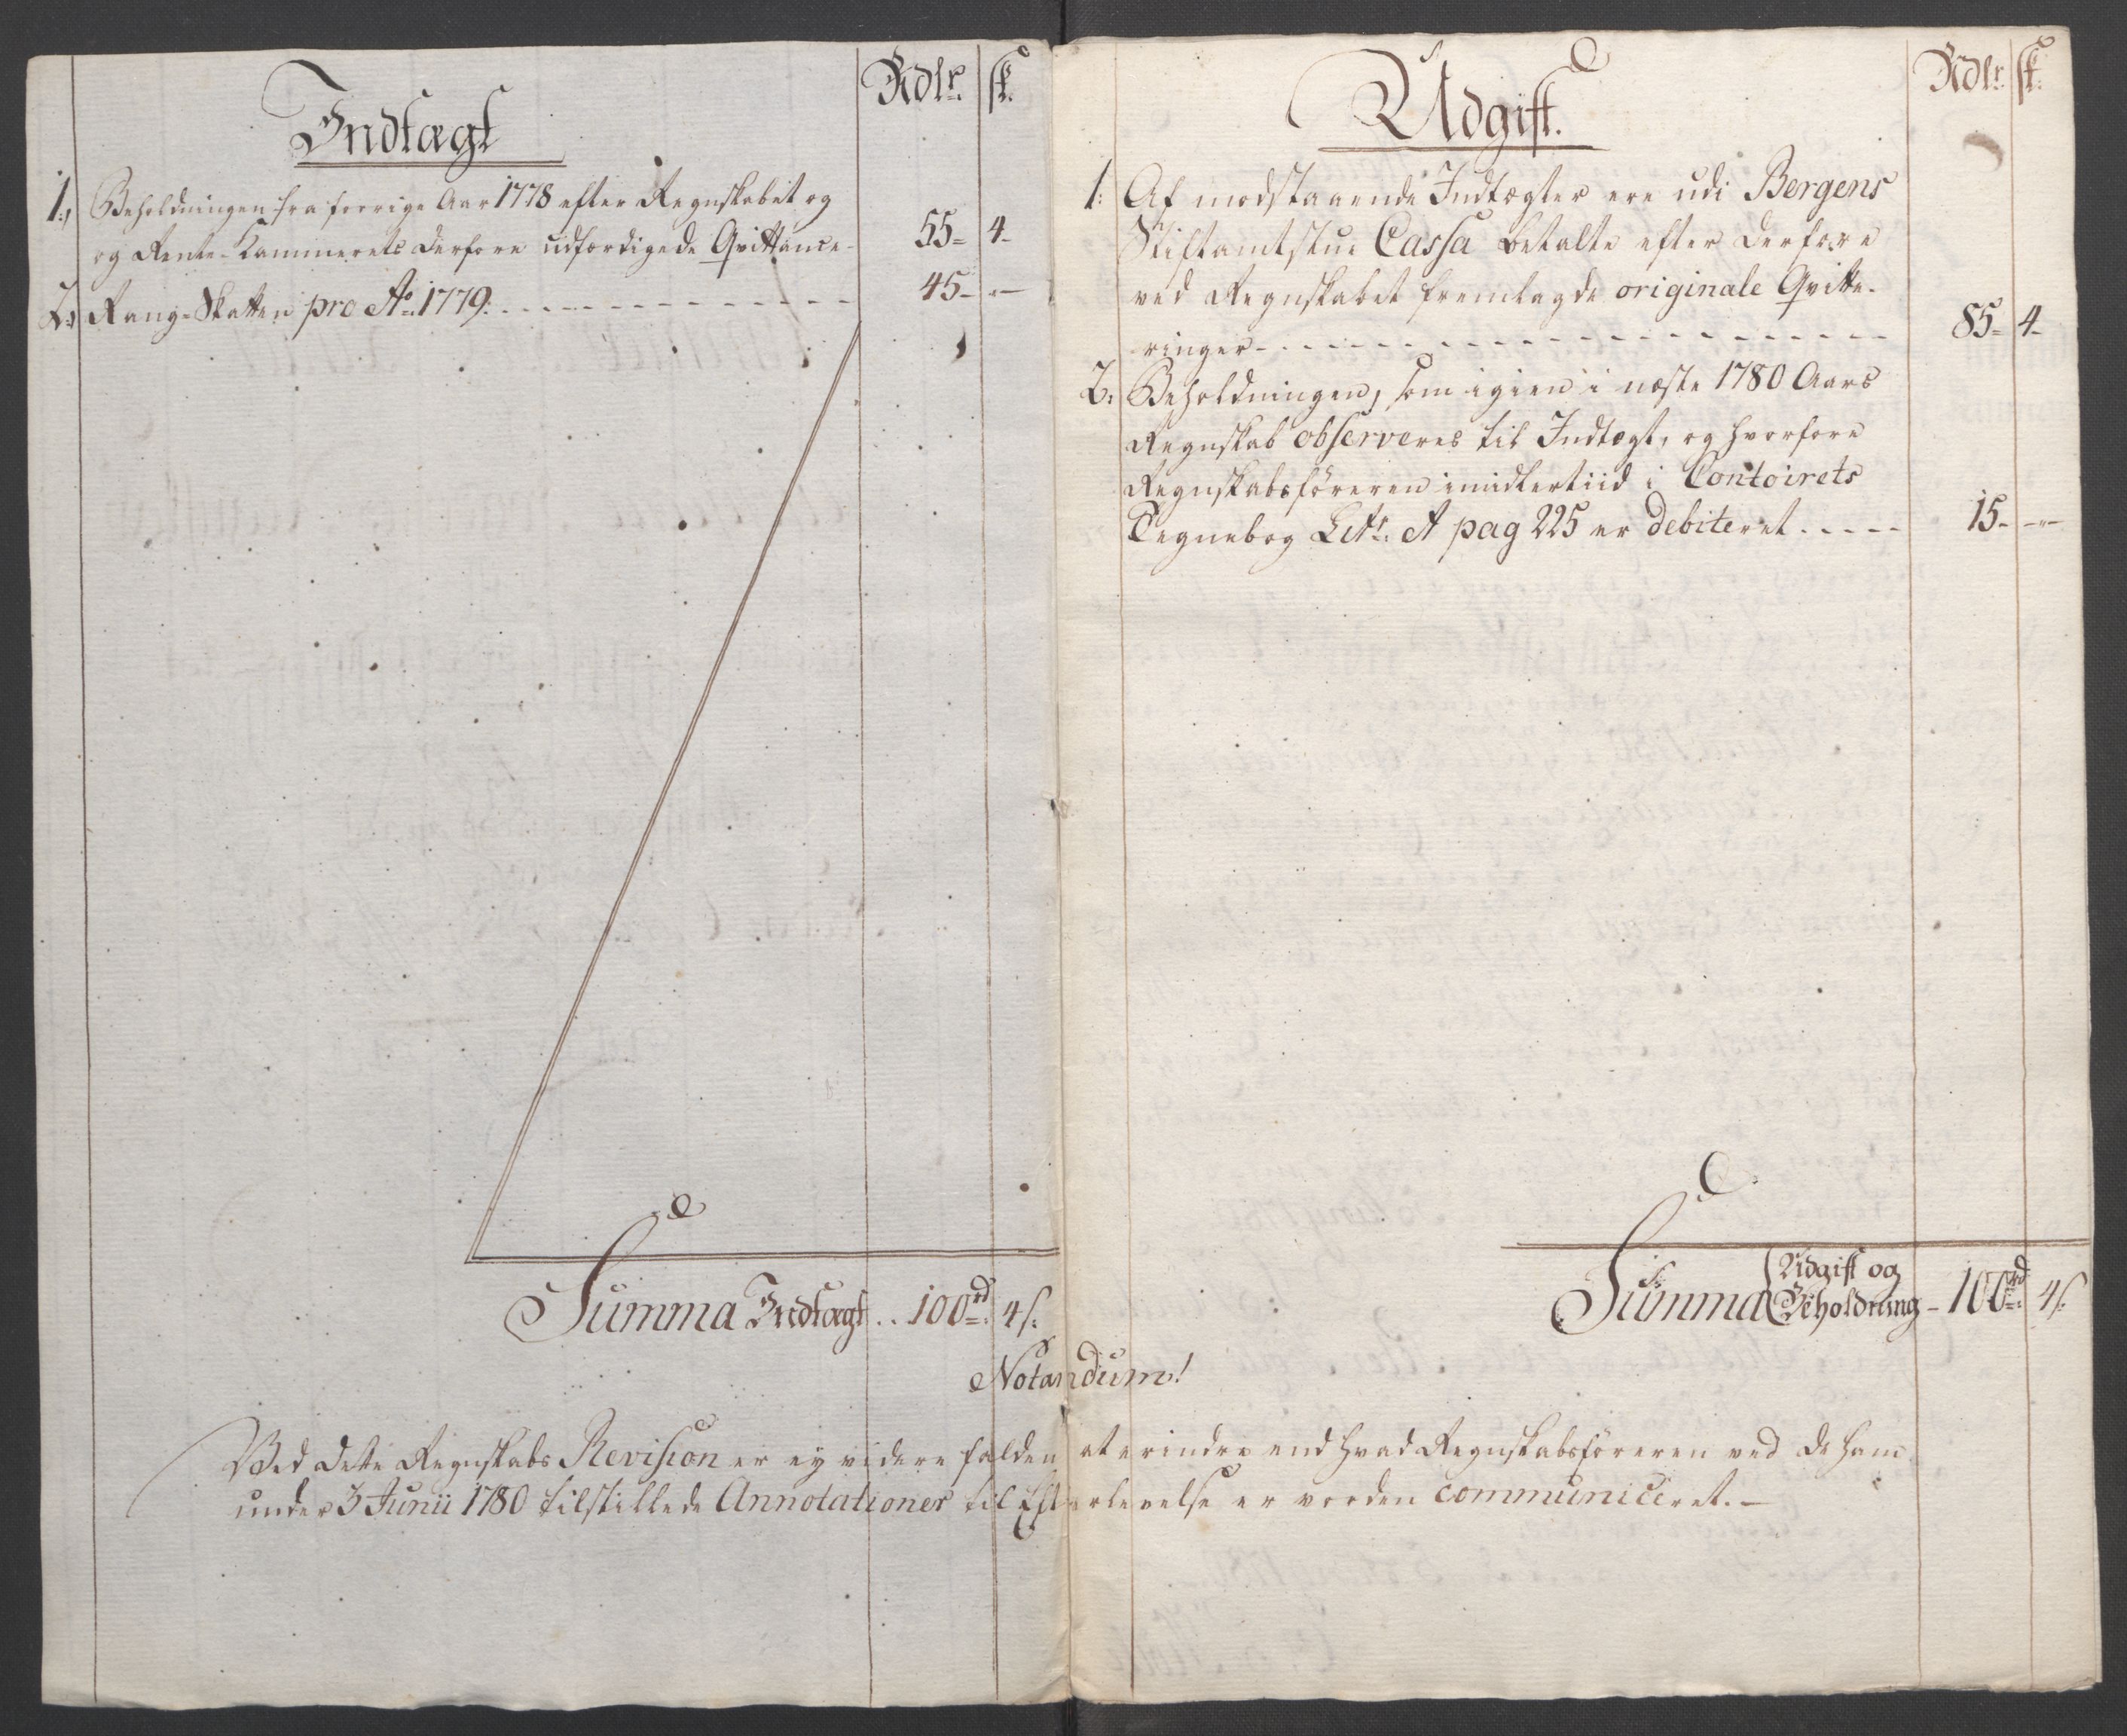 Indtægt
Rdlr. sk.
1., Beholdningen fra forrige Aar 1778 efter Regnskabet og
og Rente-Kammerets derfore udfærdigede Qvittance - 55- 4-
2., Rang-Skatten pro Ao. 1779. - - - 45- -
Summa Indtægt .. 100rd. 4s.
Udgift.
Rdlr. sk.
1. Af modstaaende Indtægter ere udi Bergens
Stiftamtstue Cassa betalte efter derfore
ved Regnskabet fremlagde originale Qvitte-
ringer - - - 85- 4-
2. Beholdningen, som igien i næste 1780 Aars
Regnskab observeres til Indtægt, og hvorfore
Regnskabsföreren imidlertiid i Contoirets
Tegnebog Litr. A pag 225 er debiteret - - - 15- -
Summa Udgift og
Beholdning - 100rd. 4s.
Notandum!
Ved dette Regnskabs Revision er ey videre falden at erindre end hvad Regnskabsföreren ved de ham
under 3 Junii 1780 tilstillede Annotationer til Efterlevelse er vorden communiceret. -